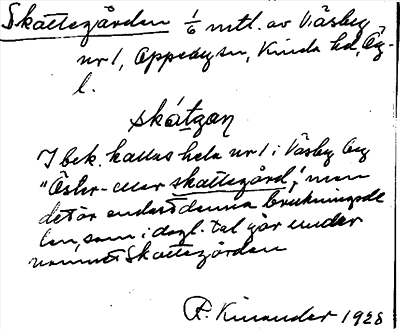 Skattegården 1/6 mtl. av Väsby
nr 1, Oppeby sn, Kinda hd, Ög.
l.
skátgan
I bek. kallas hela nr 1 i Väsby by
"Öster- eller skattegård", men
det är endast denna brukningsde
len, som i dagl. tal går under
namnet Skattegården
R. Kinander 1928